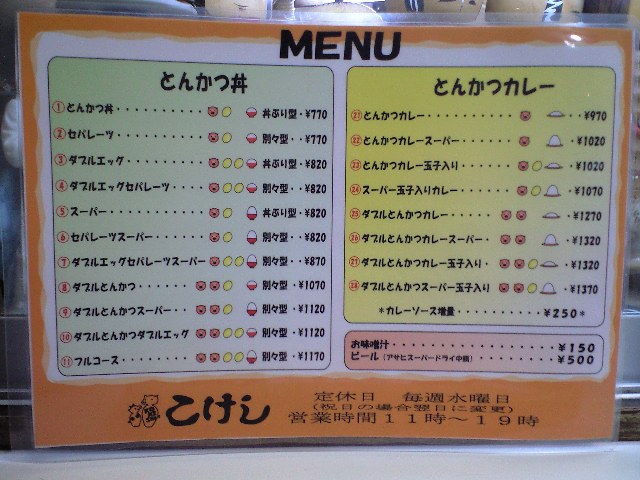 MENU
とんかつ丼
①とんかつ丼・・・・・・・・・・ 丼ぶり型・¥770
②セパレーツ・・・・・・・・・・ 別々型・・¥770
③ダブルエッグ・・・・・・・・・ 丼ぶり型・¥820
④ダブルエッグセパレーツ・・・・ 別々型・・¥820
⑤スーパー・・・・・・・・・・・ 丼ぶり型・¥820
⑥セパレーツスーパー・・・・・・ 別々型・・¥820
⑦ダブルエッグセパレーツスーパー 別々型・・¥870
⑧ダブルとんかつ・・・・・・・・ 別々型・¥1070
⑨ダブルとんかつスーパー・・・・ 別々型・¥1120
⑩ダブルとんかつダブルエッグ 別々型・¥1120
⑪フルコース・・・・・・・・・・ 別々型・¥1170
とんかつカレー
㉑とんかつカレー・・・・・・・・・・ ・・¥970
㉒とんかつカレースーパー・・・・・・ ・¥1020
㉓とんかつカレー玉子入り・・・・・・ ・¥1020
㉔スーパー玉子入りカレー・・・・・・ ・¥1070
㉕ダブルとんかつカレー・・・・・・ ・¥1270
㉖ダブルとんかつカレースーパー・ ・¥1320
㉗ダブルとんかつカレー玉子入り・ ・¥1320
㉘ダブルとんかつスーパー玉子入り ・¥1370
*カレーソース増量・・・・・・・¥250*
お味噌汁・・・・・・・・・・・・・・・・・・¥150
ビール(アサヒスーパードライ中瓶)・・・・・・・¥500
こけし
定休日 毎週水曜日
(祝日の場合翌日に変更)
営業時間11時〜19時